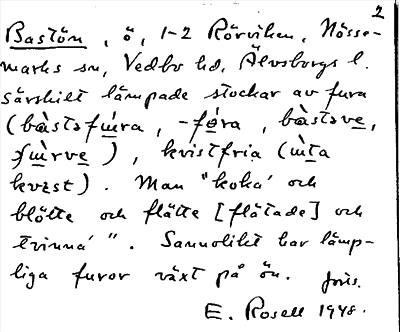 2
Bastön, ö, 1-2 Rörviken, Nösse-
marks sn, Vedbo hd, Älvsborgs l.
särskilt lämpade stockar av fura
kvistfria
kvɛst). Man "koka' och
blötte och flätte [flätade] och
tvinna' ". Sannolikt har lämp-
liga furor växt på ön. Jnis.
E. Rosell 1948.